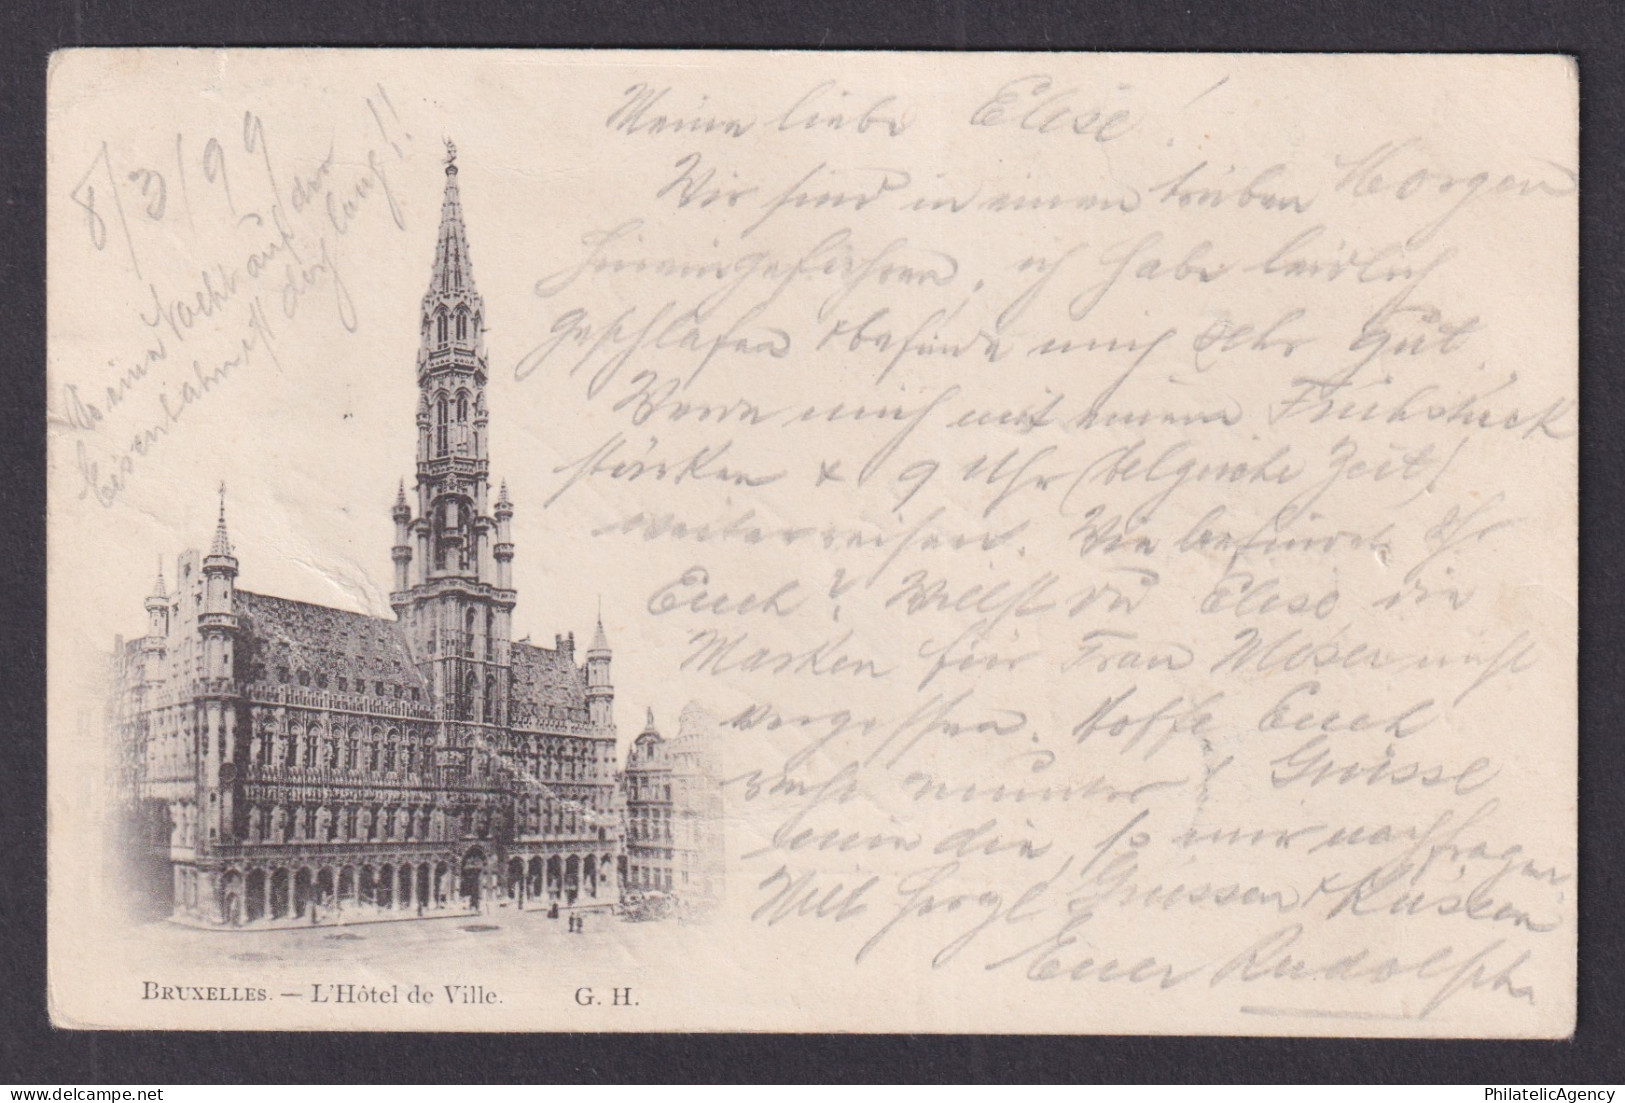 8/3/99
So eine Nacht auf der
Eisenbahn ist doch lang!!
Meine liebe Elise!
Wir sind in einen trüben Morgen
hineingefahren, ich habe leidlich
geschlafen & befinde mich sehr gut.
Werde mich mit einem Frühstück
stärken & 9 Uhr (belgische Zeit)
weiterreisen. Wie befindet Ihr
Euch? Willst du Elise die
Marken für Frau Moser nicht
vergessen. Hoffe Euch
recht munter! Grüsse
mir die, so mir nachfragen.
Mit herzl Grüssen & Küssen
Euer Rudolph
BRUXELLES. — L'Hôtel de Ville. G. H.
PhilatelicAgency